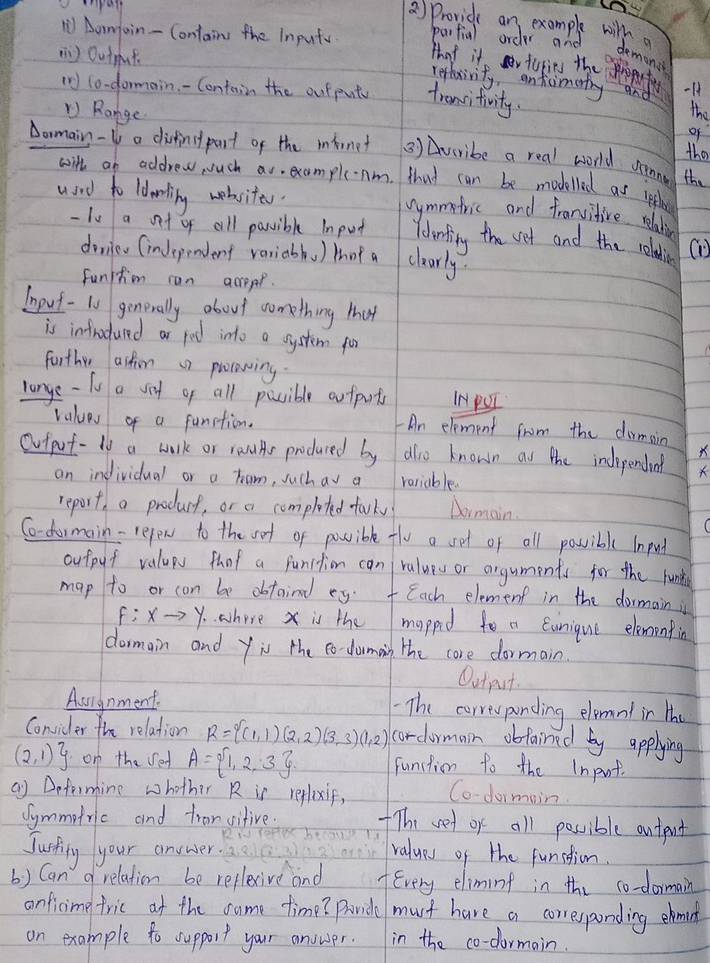 ii) Dormain - Contains the Inputs.
iii) Output.
iv) Co-dormain. - Contain the outputs
v) Range.
Dormain - Is a distinct part of the internet
with an address, such as . example.nm.
used to Identify websites.
- Is a set of all possible Input
(independent variables) that a
function can accept.
Input - Is generally about something that
is introduced or fed into a system for
further action or processing.
range - Is a set of all possible outputs
values of a function.
Output - Is a work or results produced by
an individual or a team, such as a
report, a product, or a completed task.
Co-dormain - refers to the set of possible
output values that a function can
map to or can be obtained eg.
F: X → Y. where x is the
dormain and Y is the co-dormain.
Assignment.
Consider the relation R = {(1,1)(2,2)(3,3)(1,2)
(2,1)}. on the set A = {1, 2, 3}.
a) Determine whether R is reflexif,
symmetric and transitive.
Justify your answer.
b.) Can a relation be reflexive and
anticimetric at the same time? Provide
an example to support your answer.
2) Provide an example with a
partial order and
that it the
reflexivity, antisimetry and
transitivity.
3) Describe a real world
that can be modelled as
symmetric and transitive
Identify the set and the
clearly.
INPUT
- An element from the dormain
also known as the independent
variable.
Dormain
- Is a set of all possible Input
values or arguments for the
- Each element in the dormain is
mapped to a Eunique element in
the core dormain.
Output.
- The corresponding element in the
cor-dormain obtained by applying
function to the Input.
Co-dormain.
- The set of all possible output
values of the function.
- Every eliment in the co-dormain
must have a corresponding element
in the co-dormain.
-It
the
of
tho
the
(i)